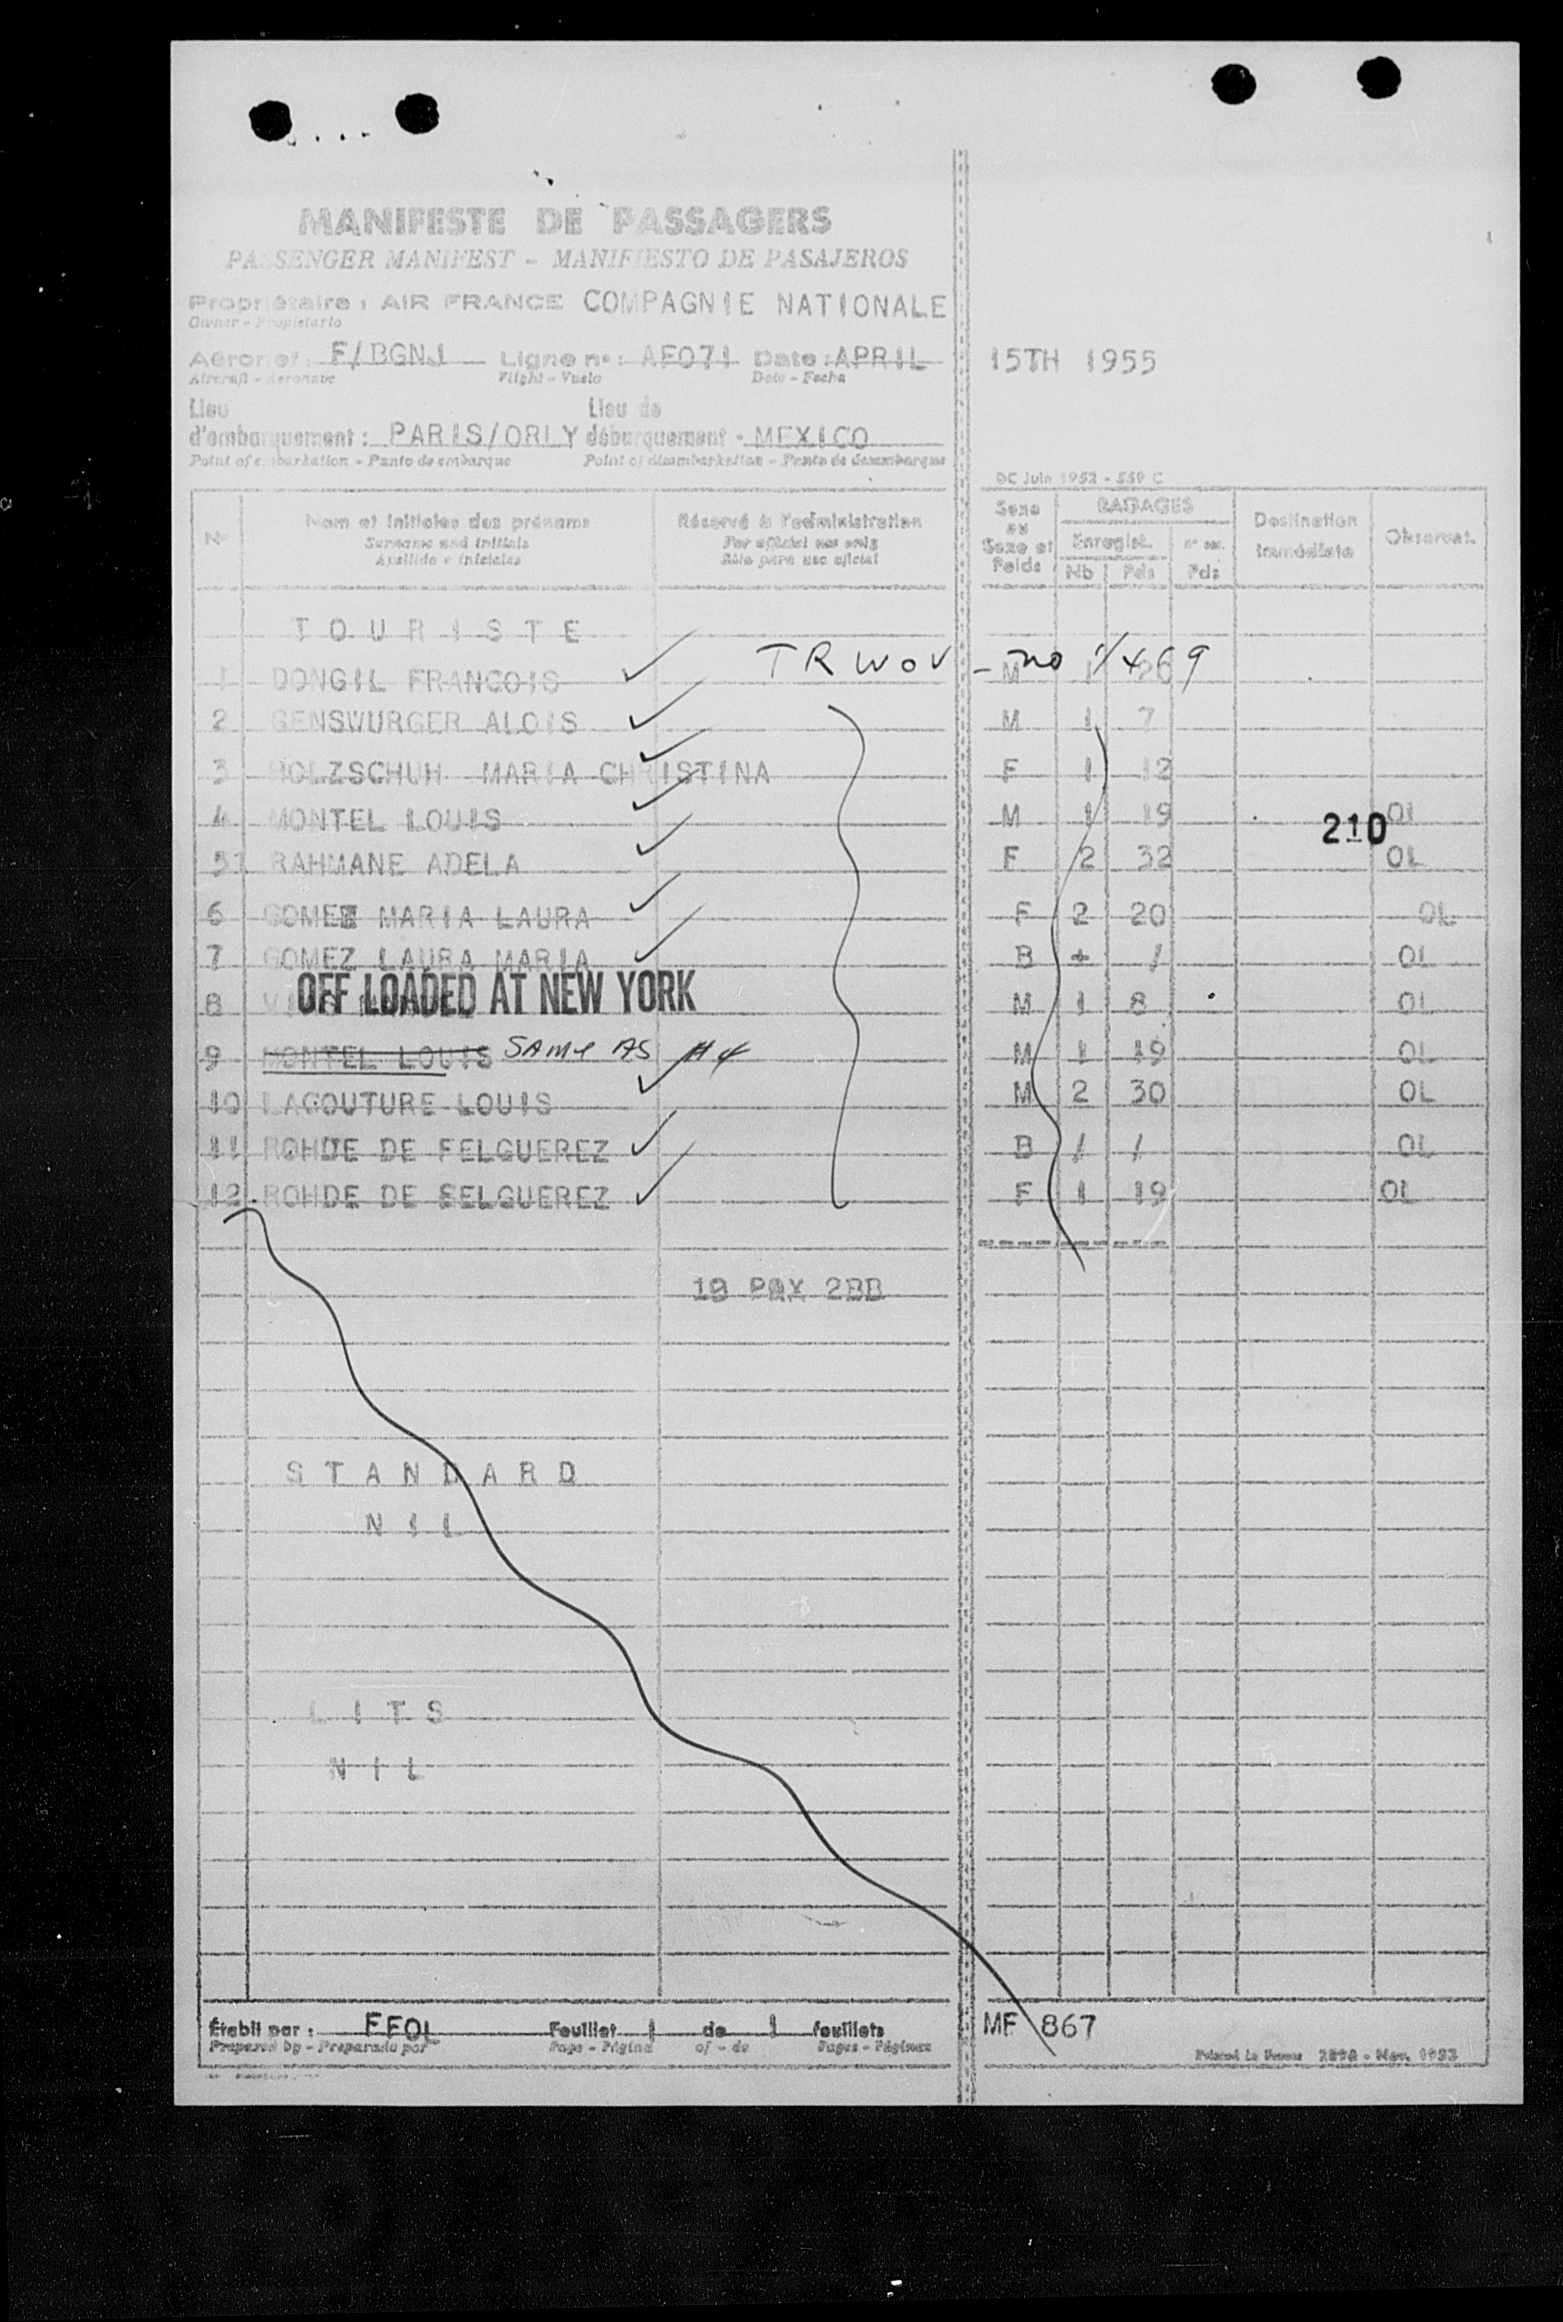 MANIFESTE DE PASSAGERS
PASSENGER MANIFEST - MANIFIESTO DE PASAJEROS
Propriétaire : AIR FRANCE COMPAGNIE NATIONALE
Owner - Propietario
Aéronef : F/BGNJ Ligne n° : AF071 Date : APRIL 15TH 1955
Aircraft - Aeronave Flight - Vuelo Date - Fecha
Lieu Lieu de
d'embarquement : PARIS/ORLY débarquement - MEXICO
Point of embarkation - Punto de embarque Point of disembarkation - Punto de desembarque
DC Juin 1952 - 559 C
N° Nom et initiales des prénoms Réservé à l'administration Sexe ou Sexe et Poids BAGAGES Destination immédiate Observat.
Surname and initials For official use only Enregist. n° enr.
Apellido e iniciales Sólo para uso oficial Nb Pds Pds
TOURISTE
1 DONGIL FRANCOIS TRWOV - no M 1 26
2 GENSWURGER ALOIS M 1 7
3 HOLZSCHUH MARIA CHRISTINA F 1 12
4 MONTEL LOUIS M 1 19 OL
210
5 RAHMANE ADELA F 2 32 OL
6 GOMEZ MARIA LAURA F 2 20 OL
7 GOMEZ LAURA MARIA B + / OL
OFF LOADED AT NEW YORK
8 M 1 8 OL
9 MONTEL LOUIS SAME AS #4 M 1 19 OL
10 LAGOUTURE LOUIS M 2 30 OL
11 ROHDE DE FELGUEREZ B / / OL
12 ROHDE DE SELGUEREZ F 1 19 OL
19 PAX 2BB
STANDARD
NIL
LITS
NIL
Établi par : FFOL Feuillet 1 de 1 feuillets MF 867
Prepared by - Preparado por Page - Página of - de Pages - Páginas
Nov. 1953